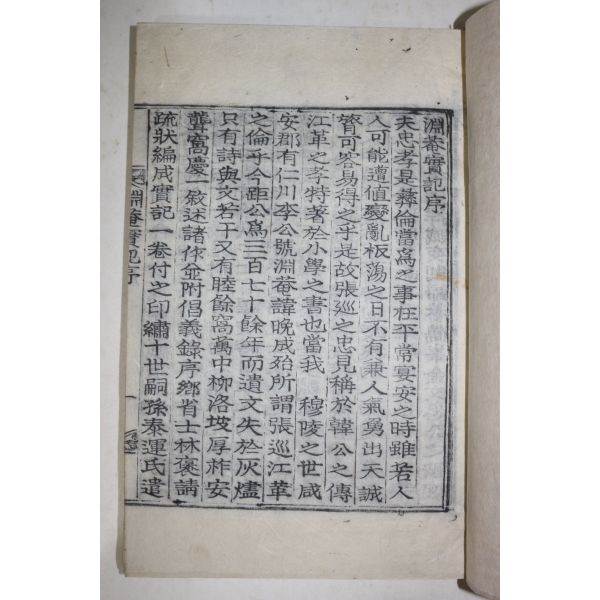 淵菴實記序
夫忠孝是彝倫當爲之事在平常宴安之時雖若人
人可能遭値變亂板蕩之日不有兼人氣勇出天誠
孰可容易得之乎是故張巡之忠見稱於韓公之傳
江革之孝特著於小學之書也當我 穆陵之世咸
安郡有仁川李公號淵菴諱晩成殆所謂張巡江革
之倫乎今距公爲三百七十餘年而遺文失於灰燼
只有詩與文若干又有睦餘窩萬中柳洛坡厚祚安
聾窩慶一敍述諸作並附倡義錄序鄕省士林褒請
疏狀編成實記一卷付之印繡十世嗣孫泰運氏遣
淵菴實記序
一